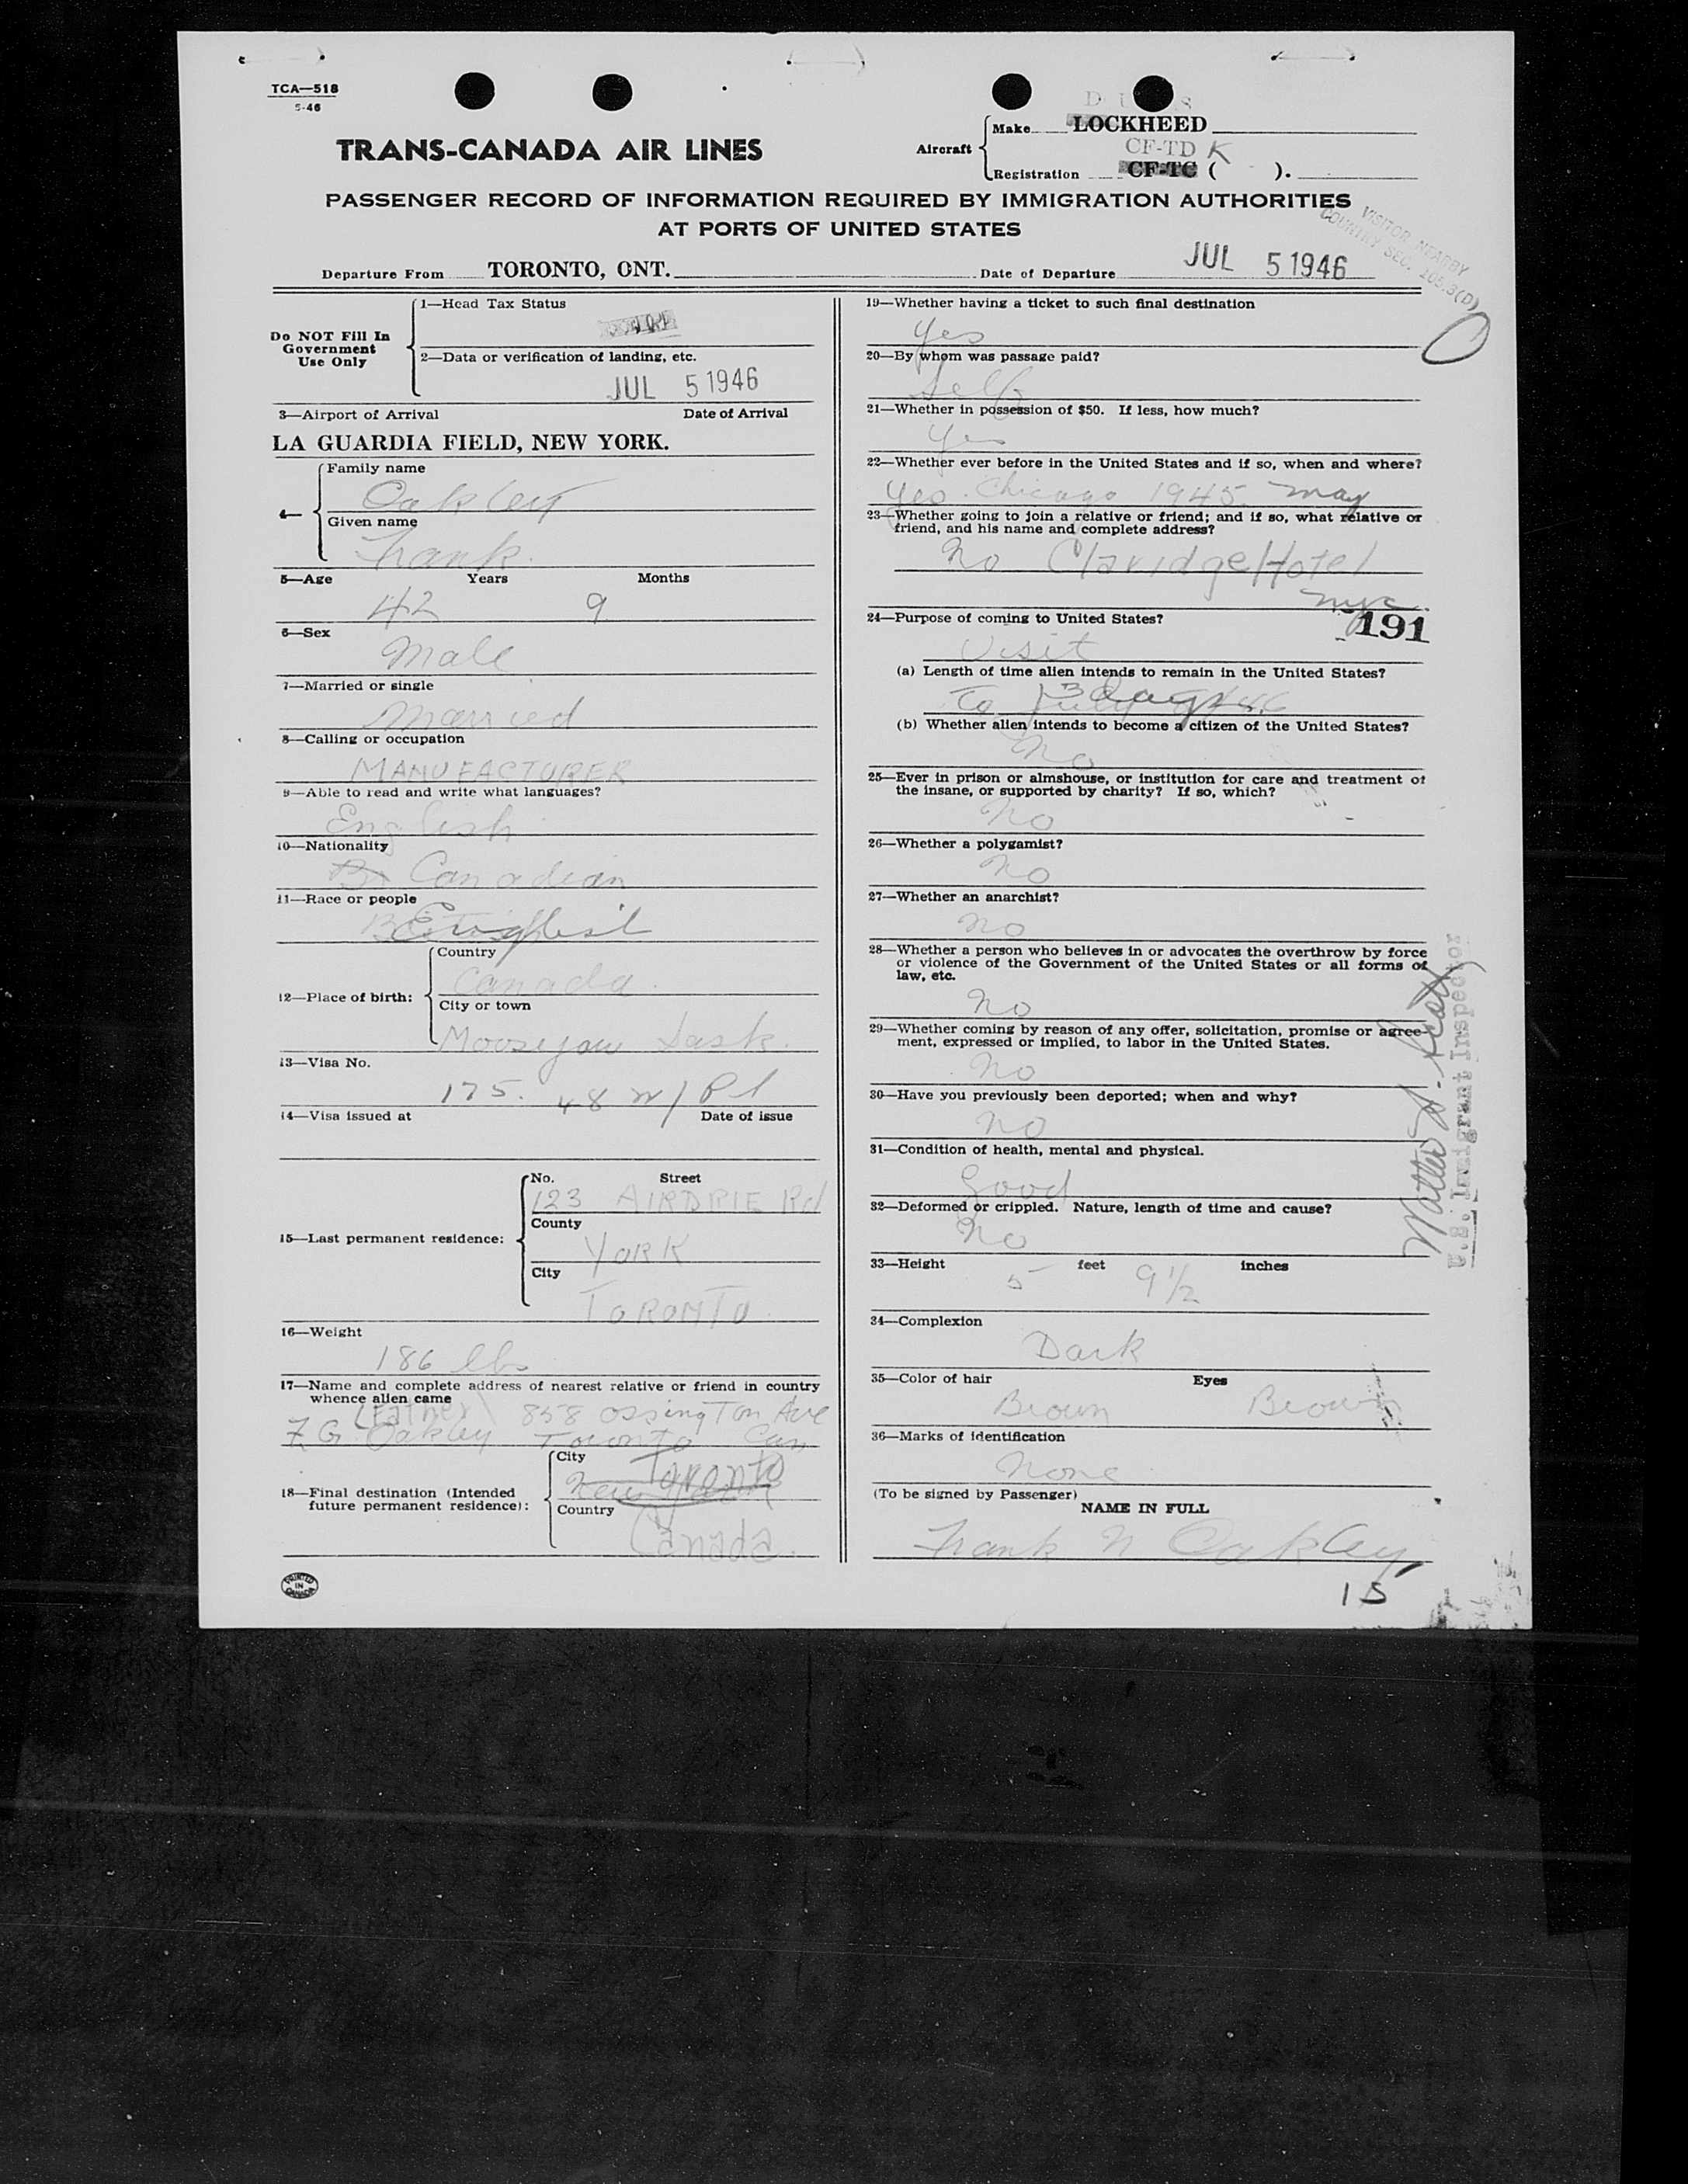 TCA—518
5-46
TRANS-CANADA AIR LINES
Aircraft
Make LOCKHEED
CF-TD K
Registration CF-TC ( ).
PASSENGER RECORD OF INFORMATION REQUIRED BY IMMIGRATION AUTHORITIES
AT PORTS OF UNITED STATES
VISITOR NEARBY
COUNTRY SEC. 105.3(D)
Departure From TORONTO, ONT. Date of Departure JUL 5 1946
Do NOT Fill In
Government
Use Only
1—Head Tax Status
2—Data or verification of landing, etc.
JUL 5 1946
3—Airport of Arrival Date of Arrival
LA GUARDIA FIELD, NEW YORK.
4—
Family name
Oakley
Given name
Frank.
5—Age Years Months
42 9
6—Sex
Male
7—Married or single
Married
8—Calling or occupation
MANUFACTURER
9—Able to read and write what languages?
English
10—Nationality
Br Canadian
11—Race or people
English
12—Place of birth:
Country
Canada.
City or town
Moosejaw Sask.
13—Visa No.
175. 48
14—Visa issued at Date of issue
15—Last permanent residence:
No. Street
123 AIRDRIE Rd
County
YORK
City
TORONTO
16—Weight
186 lbs
17—Name and complete address of nearest relative or friend in country
whence alien came
(Father) 858 Ossington Ave
F. G. Oakley Toronto Can
18—Final destination (Intended
future permanent residence):
City
Toronto
New York
Country
Canada.
19—Whether having a ticket to such final destination
Yes
20—By whom was passage paid?
Self
21—Whether in possession of $50. If less, how much?
Yes
22—Whether ever before in the United States and if so, when and where?
Yes. Chicago 1945. May
23—Whether going to join a relative or friend; and if so, what relative or
friend, and his name and complete address?
No Claridge Hotel
nyc.
24—Purpose of coming to United States?
191
Visit
(a) Length of time alien intends to remain in the United States?
To July 3 days
(b) Whether alien intends to become a citizen of the United States?
No
25—Ever in prison or almshouse, or institution for care and treatment of
the insane, or supported by charity? If so, which?
No
26—Whether a polygamist?
No
27—Whether an anarchist?
No
28—Whether a person who believes in or advocates the overthrow by force
or violence of the Government of the United States or all forms of
law, etc.
No
29—Whether coming by reason of any offer, solicitation, promise or agree-
ment, expressed or implied, to labor in the United States.
No
30—Have you previously been deported; when and why?
No
31—Condition of health, mental and physical.
Good
32—Deformed or crippled. Nature, length of time and cause?
No
33—Height feet inches
5 9½
34—Complexion
Dark
35—Color of hair Eyes
Brown Brown
36—Marks of identification
None
(To be signed by Passenger)
NAME IN FULL
Frank N Oakley
15
U.S. Immigrant Inspector
PRINTED
IN
CANADA